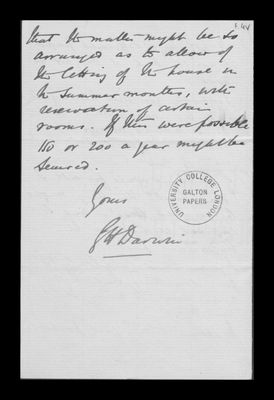 f.4v
that the matter might be so
arranged as to allow of
the letting of the house in
the summer months, with
reservation of certain
rooms. If this were possible
150 or 200 a year might be
secured.
Yours
G H Darwin
UNIVERSITY COLLEGE LONDON
GALTON
PAPERS